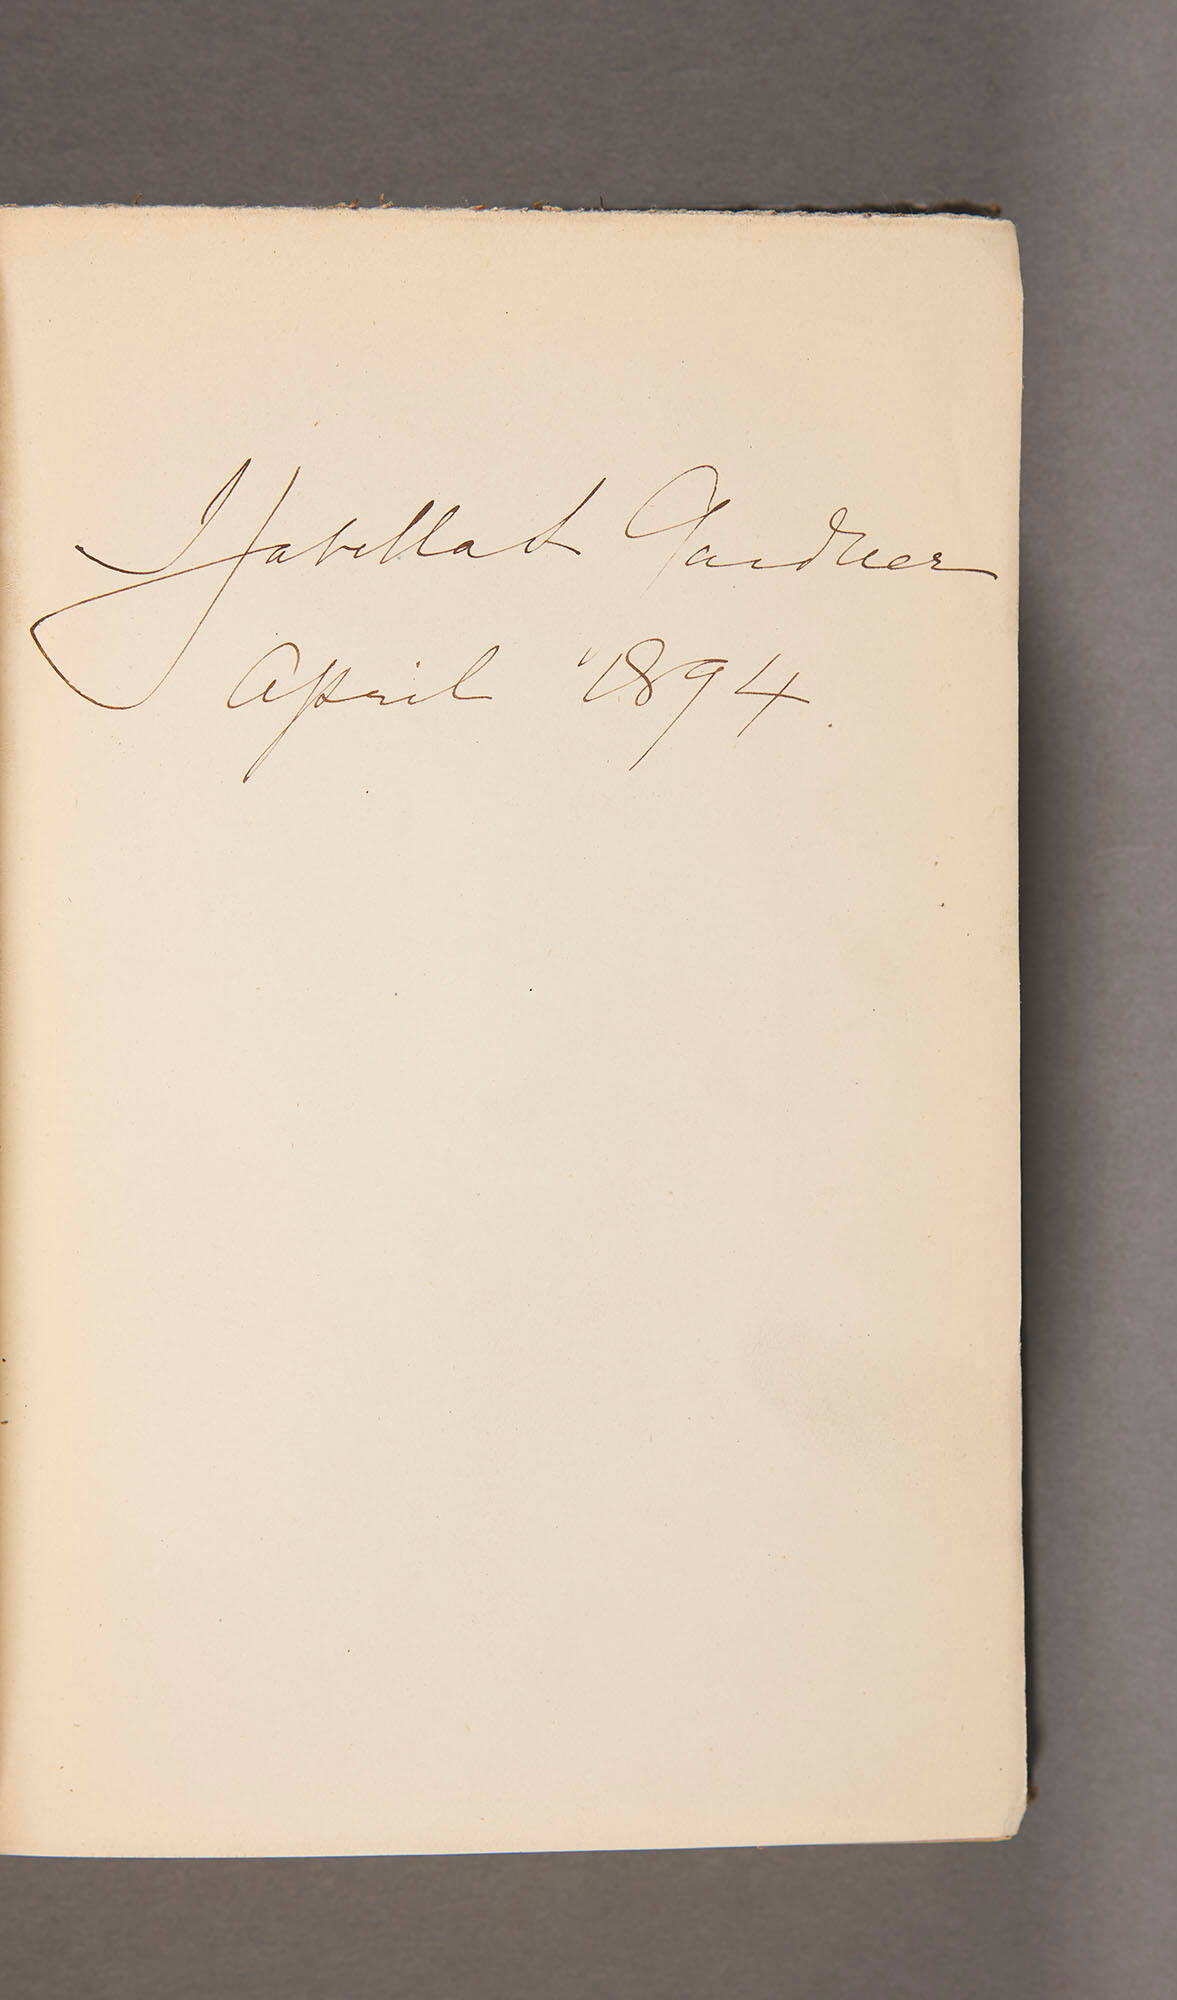 Isabella S Gardner
April 1894.